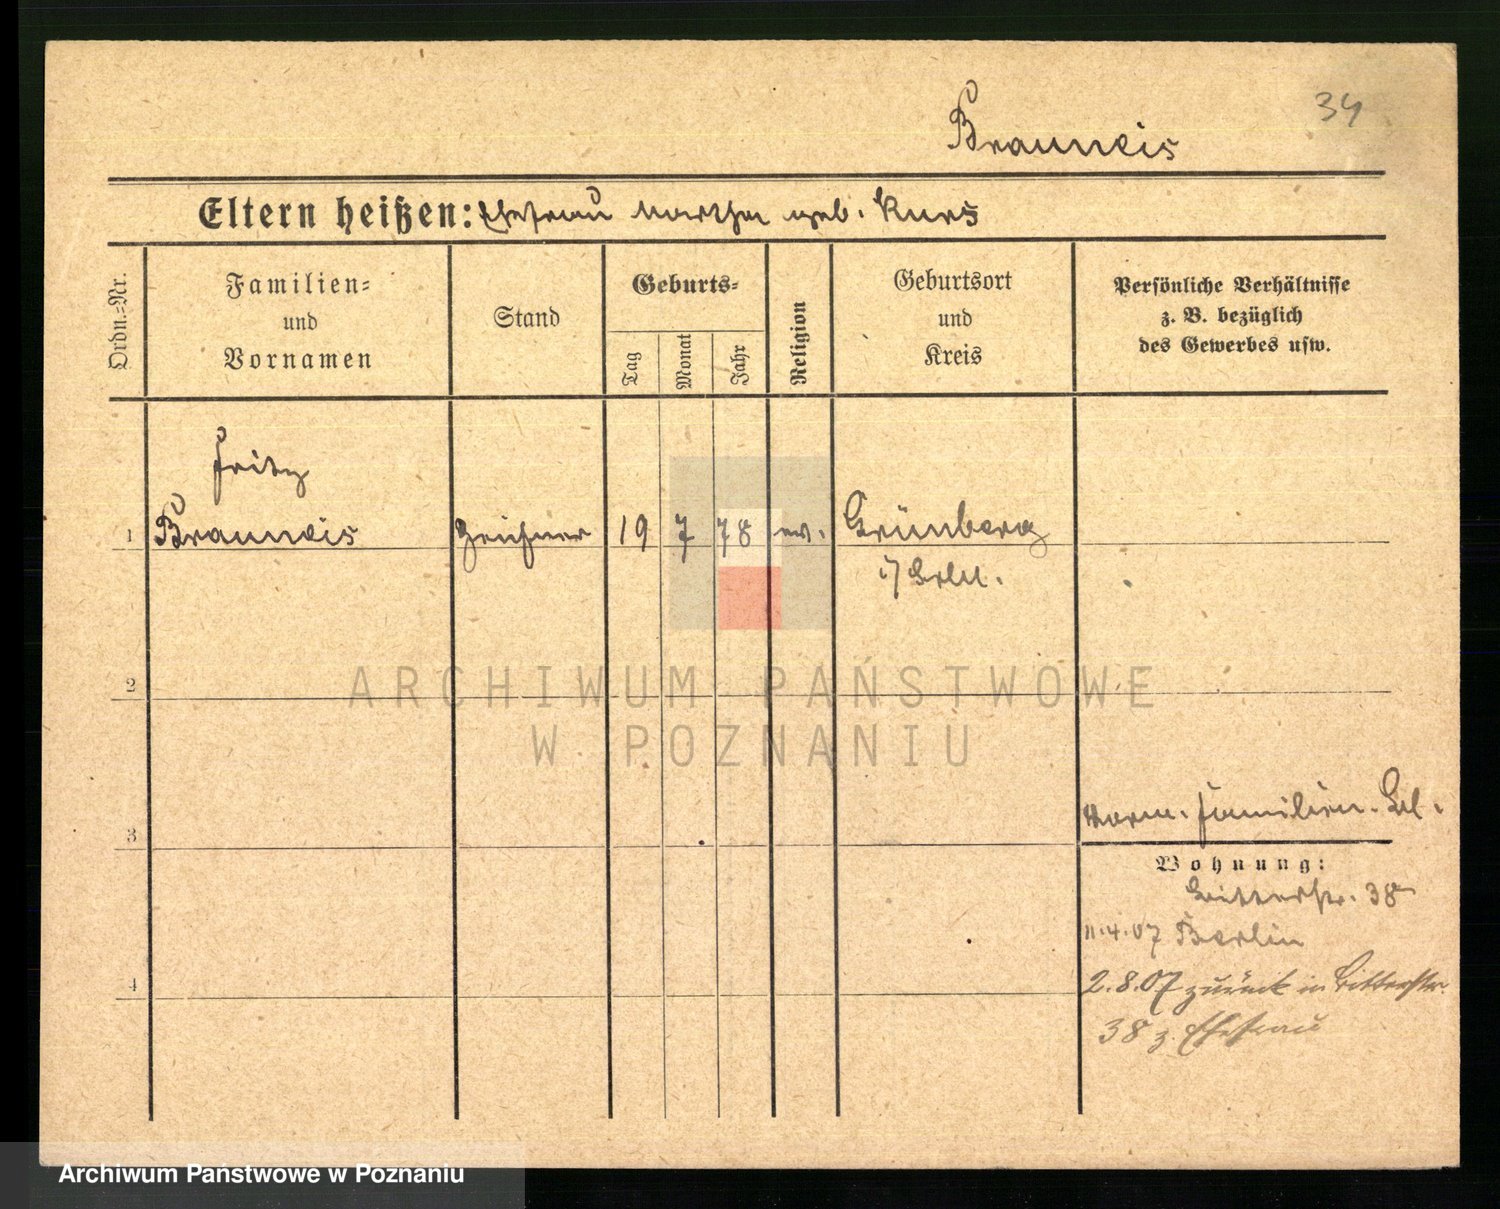 34
Brauneis
Eltern heißen: Ehefrau Martha geb. Kurs
Ordn.=Nr.
Familien=
und
Vornamen
Stand
Geburts=
Tag
Monat
Jahr
Religion
Geburtsort
und
Kreis
Persönliche Verhältnisse
z. B. bezüglich
des Gewerbes usw.
Fritz
1 Brauneis Zeichner 19 7 78 ev. Grünberg
i/ Schl.
2
ARCHIWUM PAŃSTWOWE
W POZNANIU
3
Familien.
Wohnung:
Ritterstr. 38
11.4.07 Berlin
4
2.8.07 zurück in Ritterstr.
38 z. Ehefrau
Archiwum Państwowe w Poznaniu